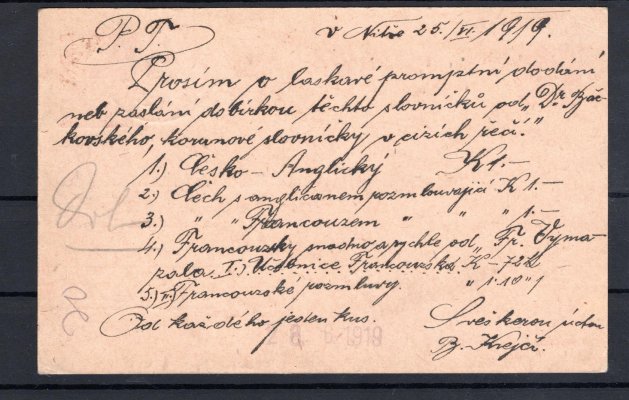 P. T.
v Nitře 25./VI. 1919.
Prosím o laskavé promptní dodání
neb zaslání dobírkou těchto slovníčků od „Dr. Báč-
kovského, korunové slovníčky v cizích řečí."
1.) Česko - Anglický K 1.—
2.) Čech s angličanem rozmlouvající K 1.—
3.) " " Francouzem " " 1.—
4.) Francouzsky snadno a rychle od „Fr. Vyma-
zala I.) Učebnice Francouzská K —72h
5.) II.) Francouzské rozmluvy. " 1.10"
Od každého jeden kus. S veškerou úctou
B. Krejčí.
1919